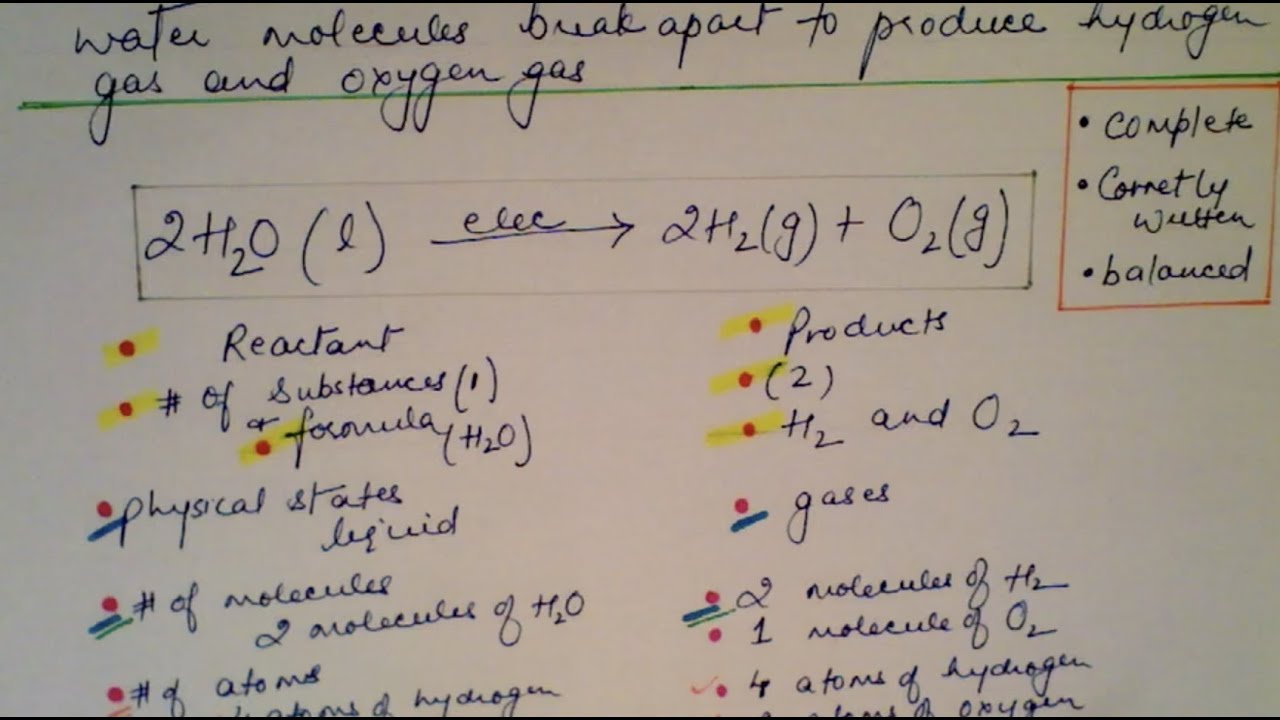 water molecules break apart to produce hydrogen
gas and oxygen gas
• complete
• Correctly
written
• balanced
2H₂O (l) elec → 2H₂(g) + O₂(g)
• Reactant
• # of substances (1)
+ formula (H₂O)
• Products
• (2)
• H₂ and O₂
• physical states
liquid
• gases
• # of molecules
2 molecules of H₂O
• 2 molecules of H₂
• 1 molecule of O₂
• # of atoms
4 atoms of hydrogen
✓• 4 atoms of hydrogen
atoms of oxygen